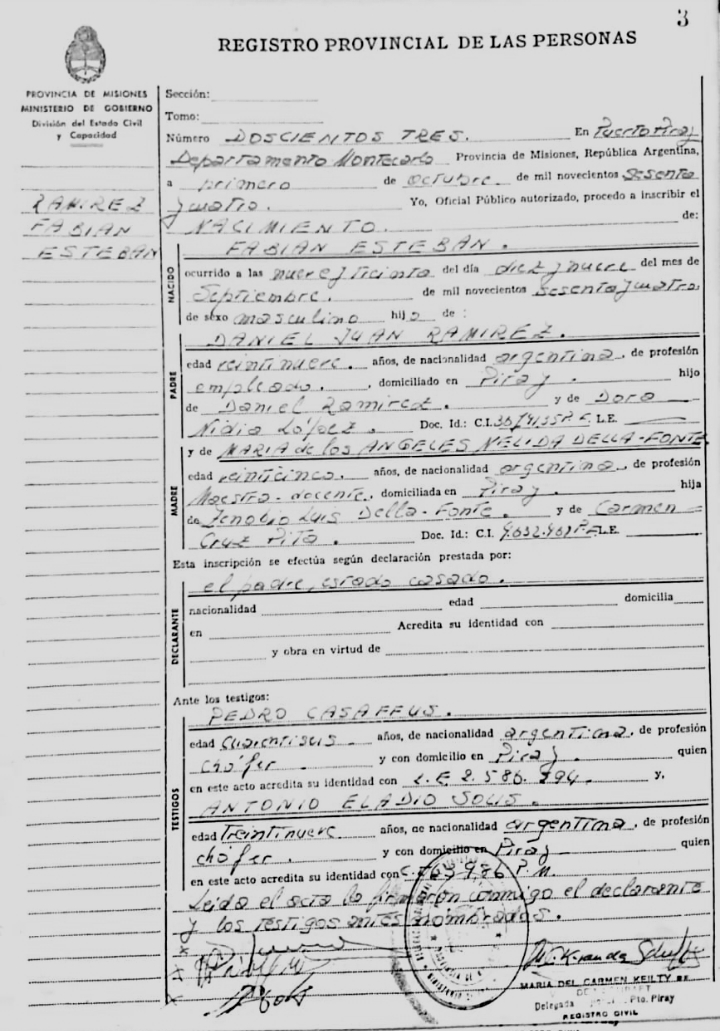 3
REGISTRO PROVINCIAL DE LAS PERSONAS
PROVINCIA DE MISIONES
MINISTERIO DE GOBIERNO
División del Estado Civil
y Capacidad
RAMIREZ
FABIAN
ESTEBAN
Sección:
Tomo:
Número DOSCIENTOS TRES. En Puerto Piray
Departamento Montecarlo Provincia de Misiones, República Argentina,
a primero de octubre de mil novecientos sesenta
y cuatro. Yo, Oficial Público autorizado, procedo a inscribir el
NACIMIENTO. de:
FABIAN ESTEBAN.
NACIDO
ocurrido a las nueve y treinta del día diez y nueve del mes de
Septiembre. de mil novecientos sesenta y cuatro
de sexo masculino hijo de :
DANIEL JUAN RAMIREZ.
PADRE
edad veintinueve. años, de nacionalidad argentina, de profesión
empleado. , domiciliado en Piray. hijo
de Daniel Ramirez. y de Dora
Nidia López. Doc. Id.: C.I. L.E.
y de MARIA de los ANGELES NELIDA DELLA-FONTE
MADRE
edad veinticinco. años, de nacionalidad argentina, de profesión
Maestra-docente, domiciliada en Piray. hija
de Zenobio Luis Della-Fonte. y de Carmen
Cruz Pita. Doc. Id.: C.I. L.E.
Esta inscripción se efectúa según declaración prestada por:
el padre, estado casado.
DECLARANTE
nacionalidad edad domicilia
en Acredita su identidad con
y obra en virtud de
Ante los testigos:
PEDRO CASAFFUS.
TESTIGOS
edad años, de nacionalidad argentina, de profesión
chófer y con domicilio en Piray quien
en este acto acredita su identidad con L.E 2.586.894. y,
ANTONIO ELADIO SOLIS.
edad Treintinueve años, de nacionalidad argentina, de profesión
chófer. y con domicilio en Piray quien
en este acto acredita su identidad con
Leida el acta la firmaron conmigo el declarante
y los testigos antes nombrados.
MARIA DEL CARMEN KEILTY DE
Delegada Pto. Piray
REGISTRO CIVIL